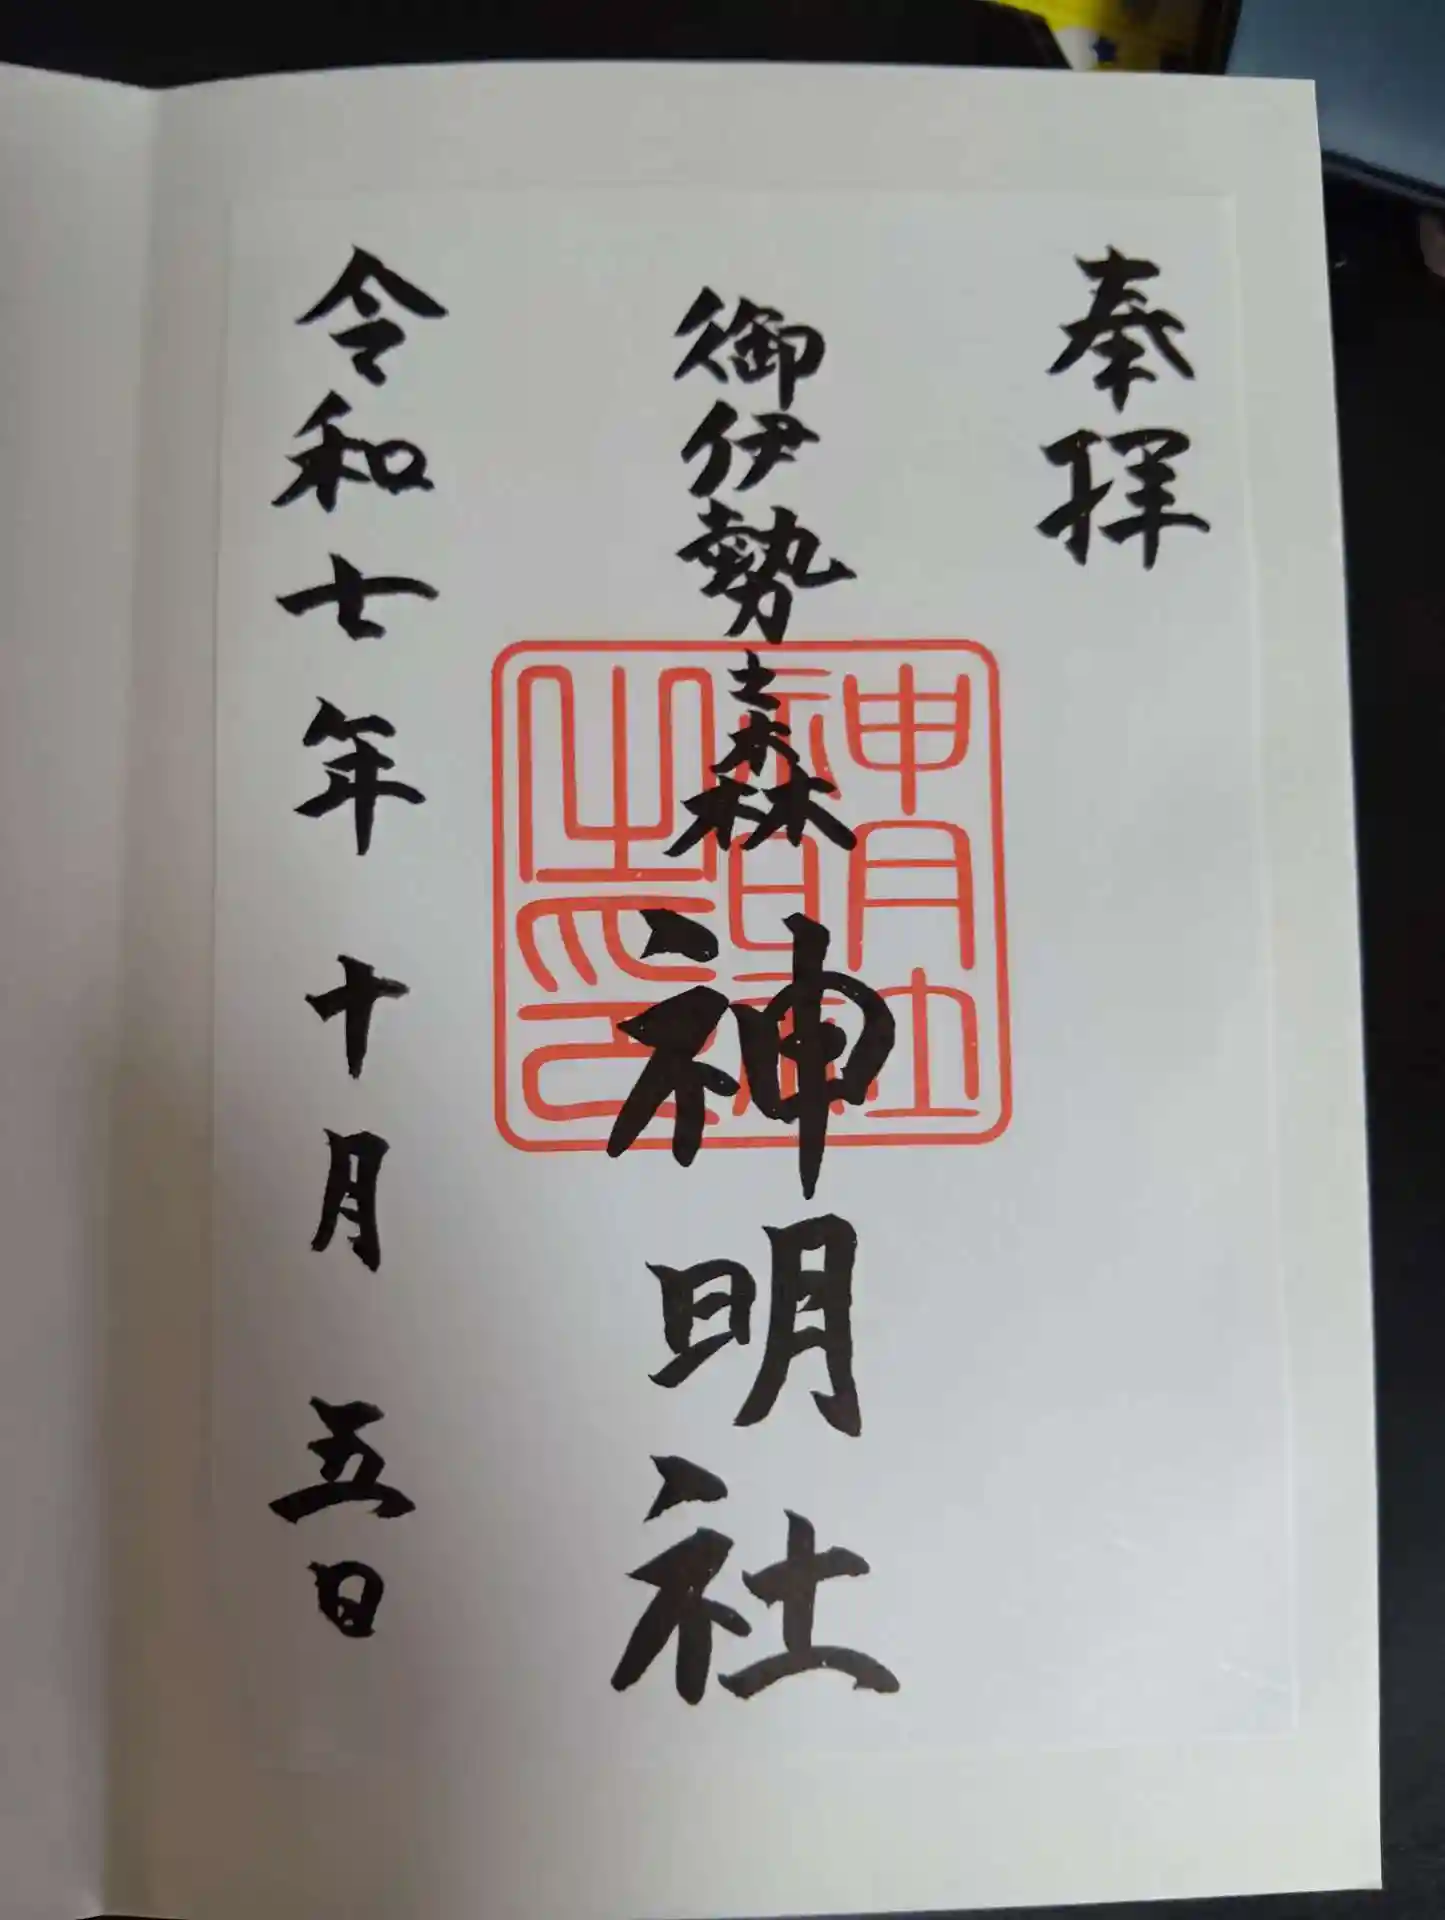 奉拝
御伊勢之森
神明社
神明社
之印
令和七年十月五日